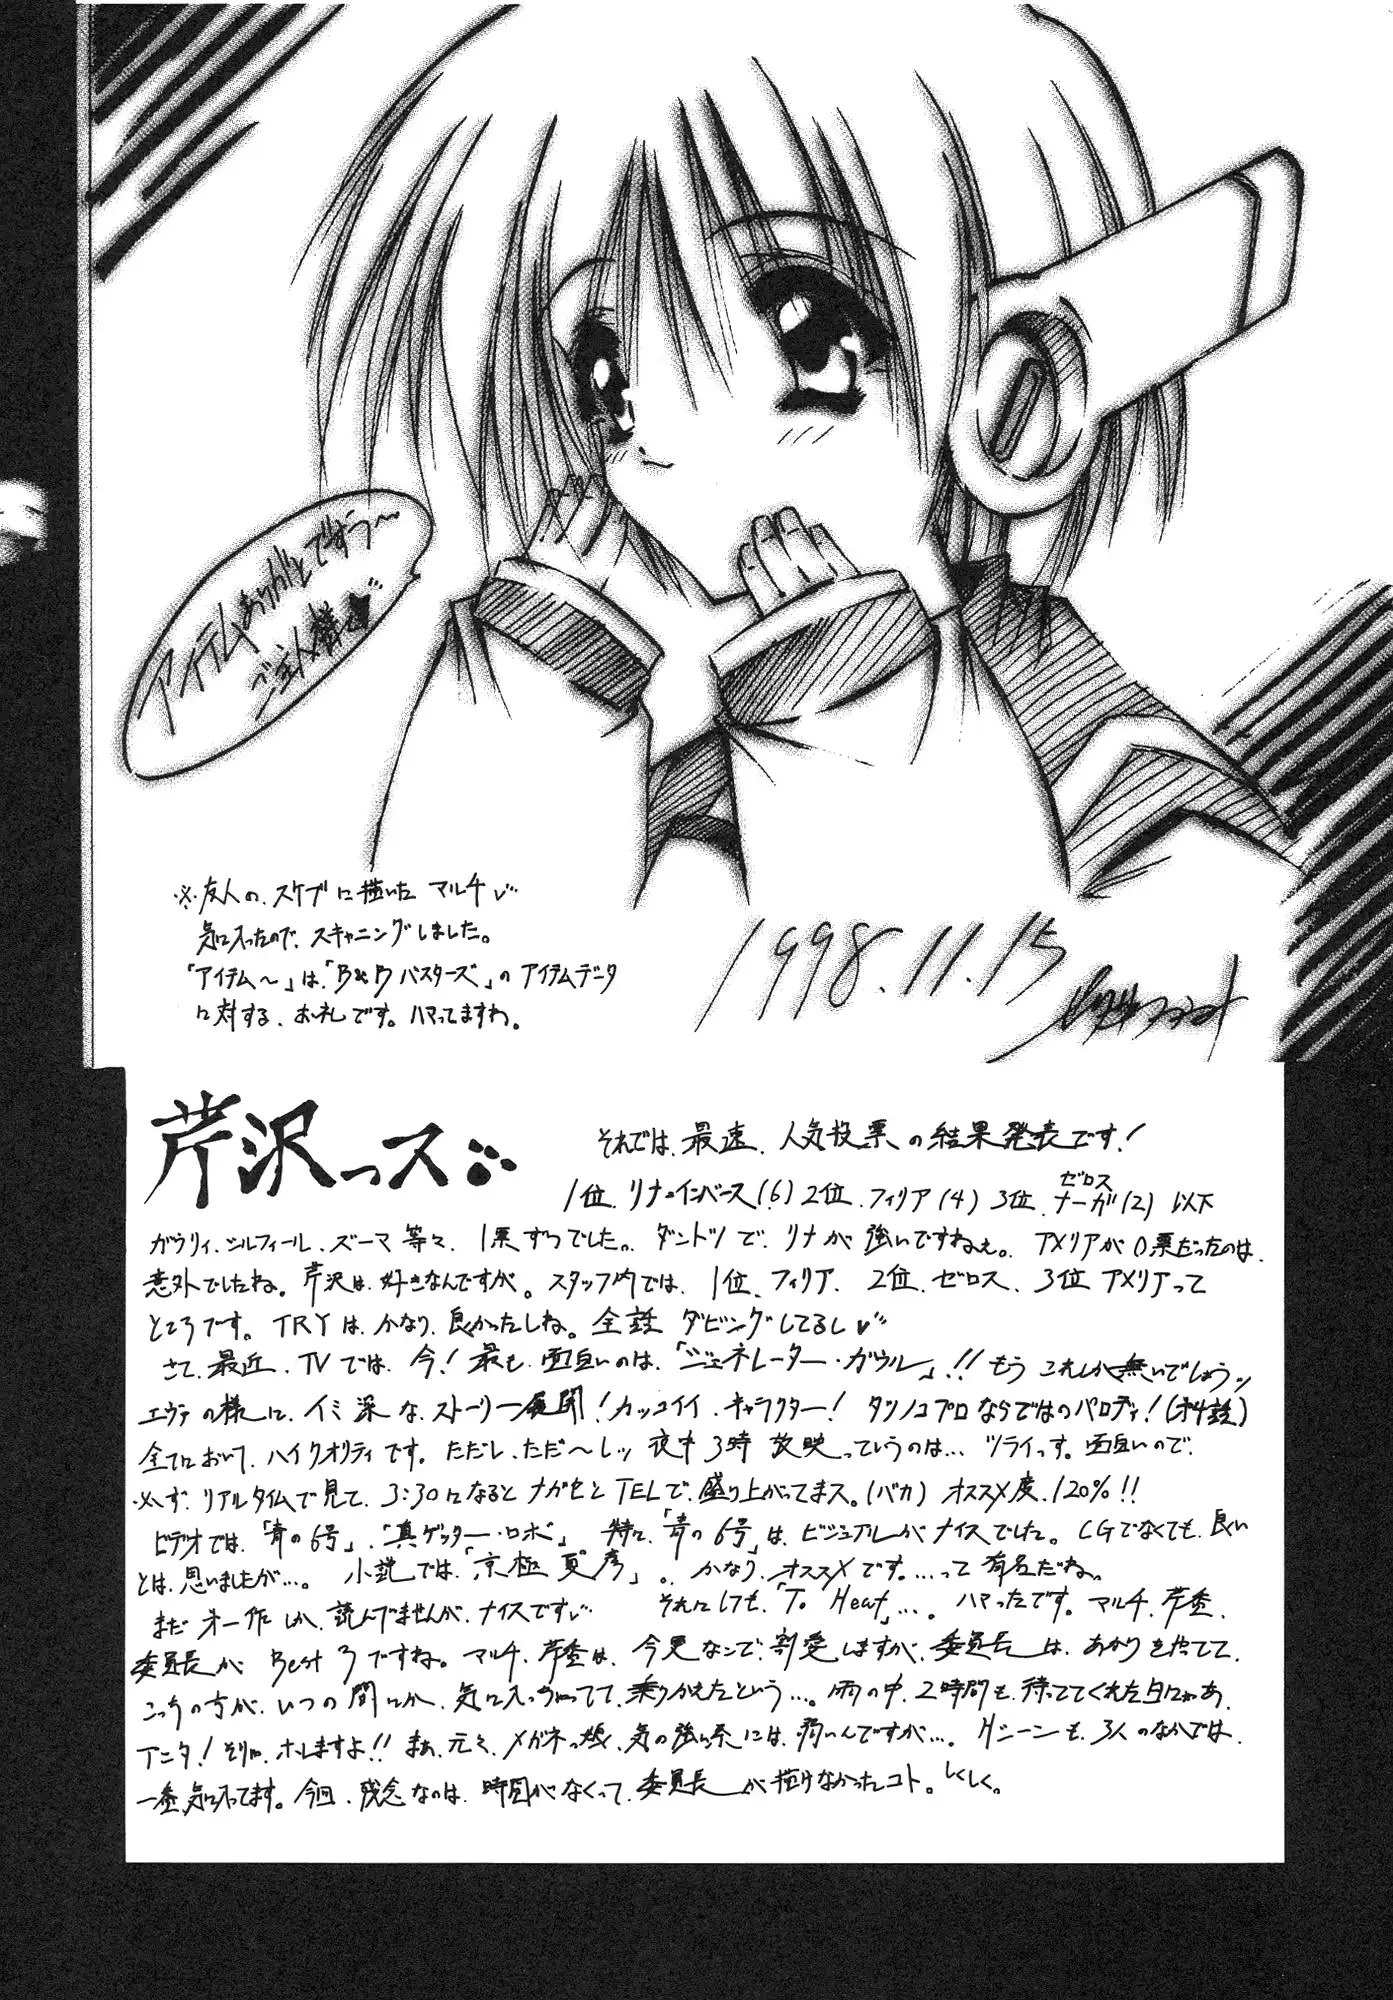 アイテムありがとですぅ〜
ご主人様
※友人の、スケブに描いた マルチ
気に入ったので、スキャニングしました。
「アイテム〜」は、「B&Bバスターズ」の アイテムデータ
に対する、お礼です。ハマってますね。
1998.11.15
芹沢っス
それでは、最速、人気投票の結果発表です!
1位、リナ=インバース(6) 2位、フィリア(4) 3位、ゼロス ナーガ(2) 以下
ガウリィ、シルフィール、ズーマ 等々、1票ずつでした。ダントツで、リナが強いですねぇ。アメリアが0票だったのは、
意外でしたね。芹沢は、好きなんですが。スタッフ内では、1位、フィリア、2位、ゼロス、3位 アメリアって
ところです。TRYは、かなり、良かったしね。全話 ダビングしてるし
さて、最近、TVでは、今!最も、面白いのは、「ジェネレーター・ガウル」!!もう これしか無いでしょう
エヴァの様に、イミ深な、ストーリー展開!カッコイイ、キャラクター!タツノコプロならではのパロディ!(オ4話)
全てにおいて、ハイクオリティです。ただし、ただ〜しッ 夜中3時 放映っていうのは… ツライっす。面白いので、
必ず、リアルタイムで見て、3:30になると ナガセと TELで、盛り上がってまス。(バカ) オススメ度、120%!!
ビデオでは、「青の6号」、「真ゲッター・ロボ」 特に、「青の6号」は、ビジュアルがナイスでした。CGでなくても、良い
とは、思いましたが…。 小説では、「京極夏彦」。かなり、オススメです。…って 有名だね。
まだ オ一作しか、読んでませんが、ナイスです それにしても、「To Heart」…。ハマったです。マルチ、芹香、
委員長が Best 3ですね。マルチ、芹香は、今更なので、割愛しますが、委員長は、あかりを捨てて、
こっちの方が、いつの間にか、気に入っちゃってて、乗りかえたという…。雨の中、2時間も、待っててくれた日にゃあ、
アニタ!そりゃ、ホレますよ!!まぁ、元々、メガネっ娘、気の強い系には、弱いんですが…。Hシーンも、3人のなかでは、
一番、気に入ってます。今回、残念なのは、時間がなくって、委員長が描けなかったコト。しくしく。